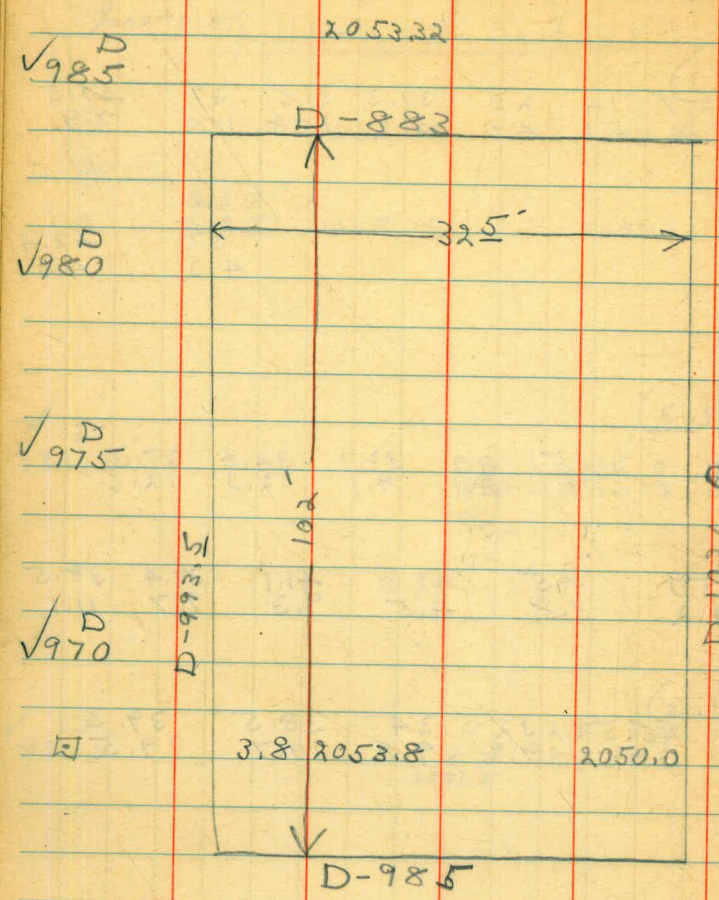 2053.32
√985 D
D-883
32 5'
√980 D
√975 D
102'
D-993.5
√970 D
3.8 2053.8 2050.0
D-985